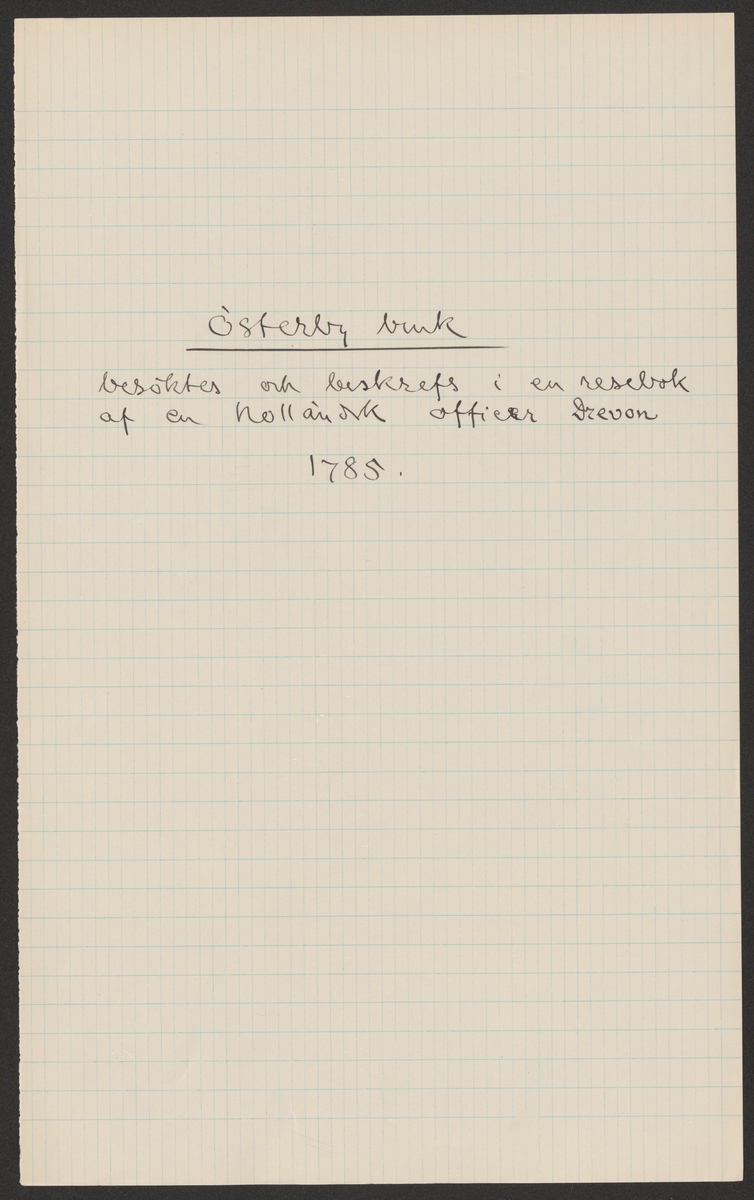 Österby bruk
besöktes och beskrefs i en resebok
af en holländsk officer Drevon
1785.